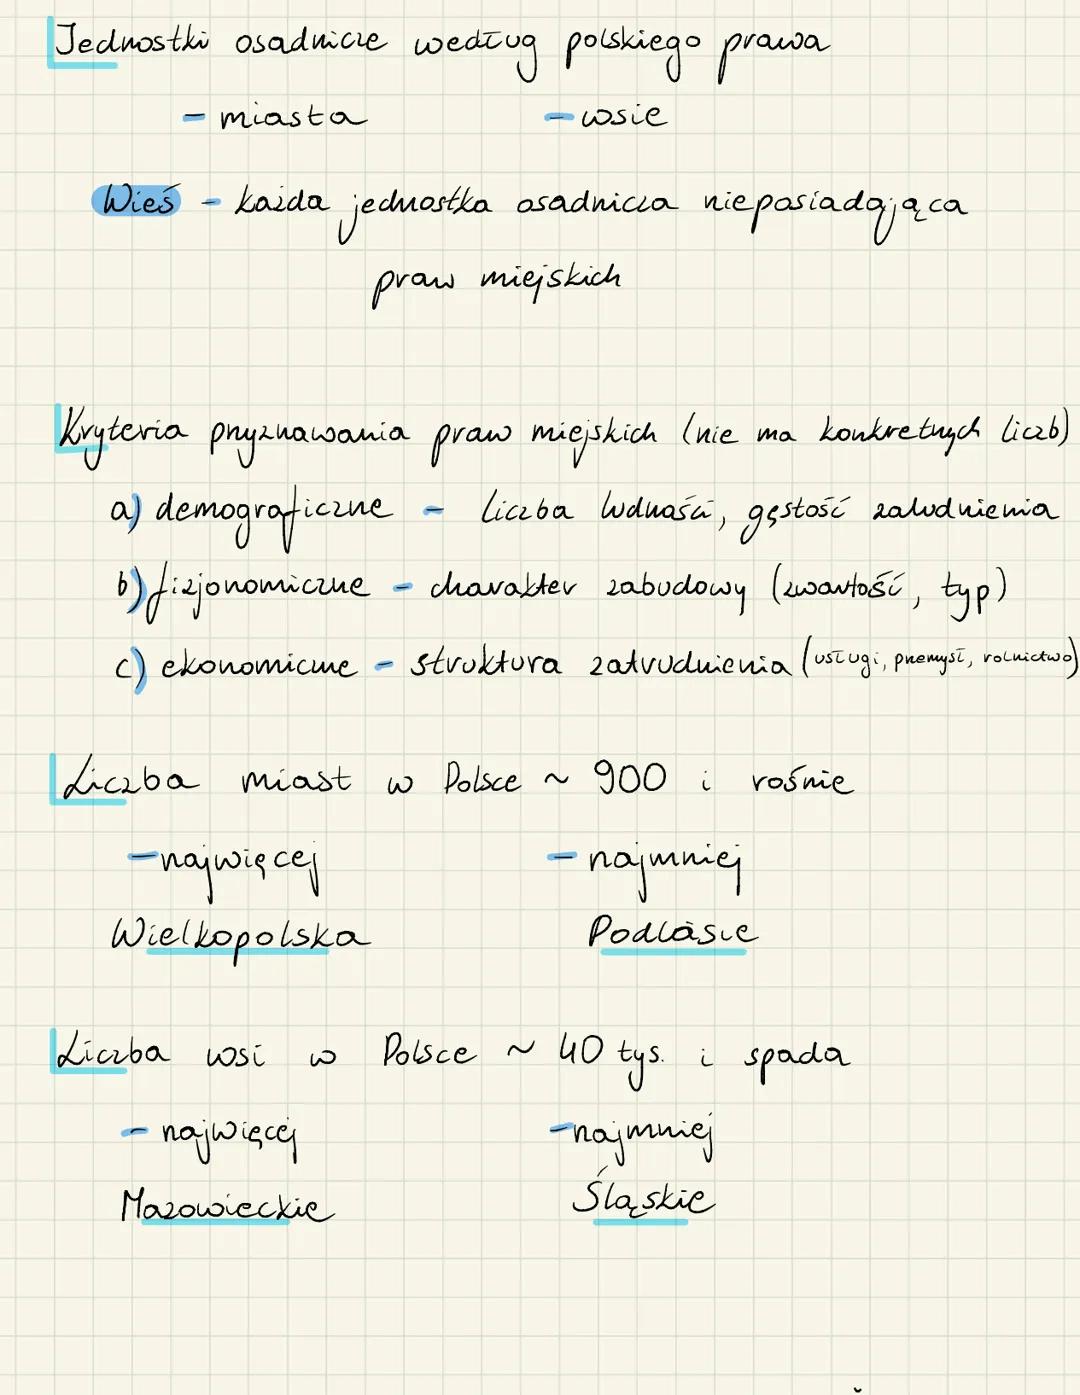 Jednostki osadnicze według polskiego prawa
- miasta - wsie
Wieś - każda jednostka osadnicza nieposiadająca
praw miejskich
Kryteria przyznawania praw miejskich (nie ma konkretnych liczb)
a) demograficzne - liczba ludności, gęstość zaludnienia
b) fizjonomiczne - charakter zabudowy (zwartość, typ)
c) ekonomiczne - struktura zatrudnienia (usługi, przemysł, rolnictwo)
Liczba miast w Polsce ~ 900 i rośnie
- najwięcej - najmniej
Wielkopolska Podlasie
Liczba wsi w Polsce ~ 40 tys. i spada
- najwięcej - najmniej
Mazowieckie Śląskie